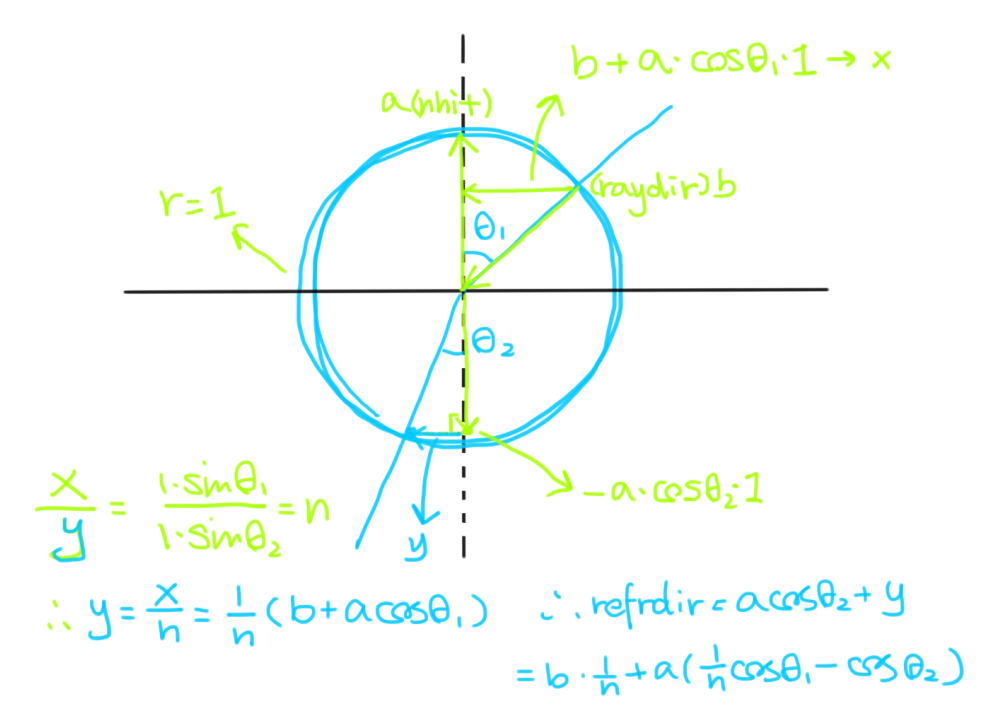 b + a · cosθ₁ · 1 → x
a(nhit)
(raydir) b
r = 1
θ₁
θ₂
-a · cosθ₂ · 1
x/y = 1·sinθ₁/1·sinθ₂ = n
y
∴ y = x/n = 1/n (b + a cosθ₁)
∴ refrdir = a cosθ₂ + y
= b · 1/n + a(1/n cosθ₁ - cosθ₂)